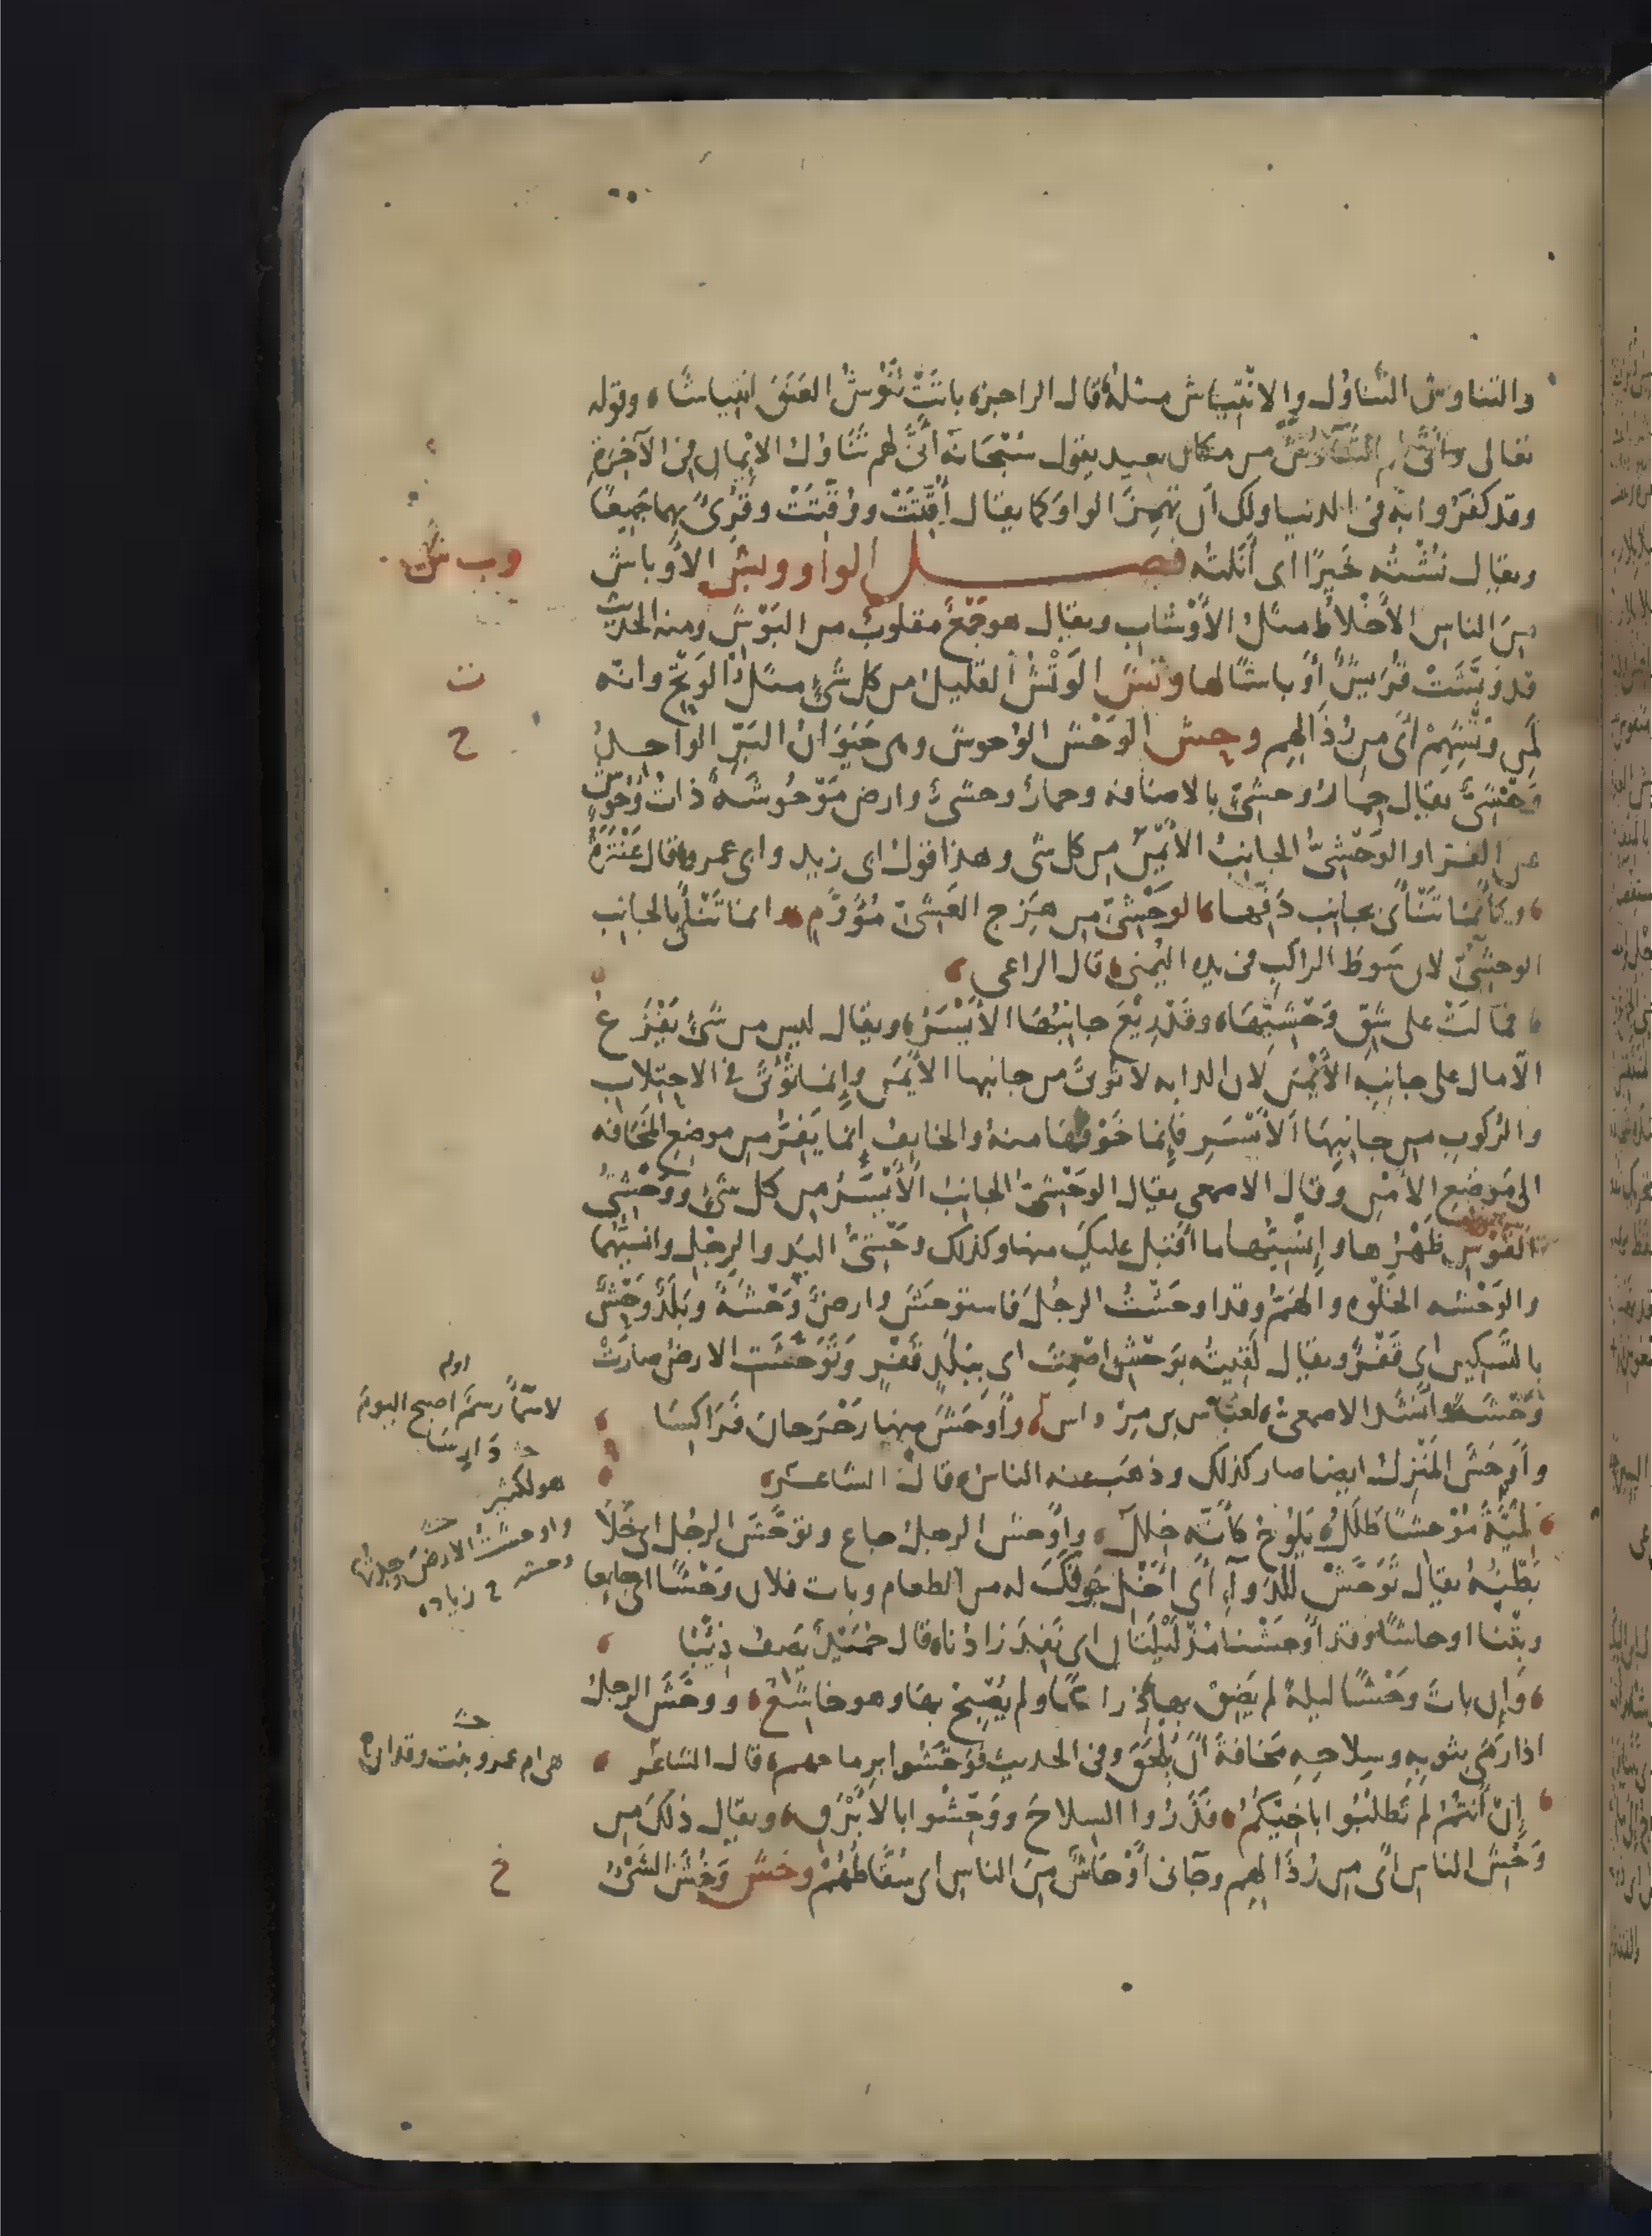 والتناوش التَّناوُل والانْتِيَاش مثلهُ قال الراجز باتَتْ تَنُوْشُ العَنَقَ انتِياشَا وقوله
تعالى وأَنَّى لهم التَّنَاوُشُ من مكان بعيد يقول سُبْحَانَهُ أَنَّى لهم تَنَاوُلُ الإيمانِ في الآخِرَةِ
وقد كَفَرُوا به في الدنيا ولك أن تَهْمِزَ الواو كما يقال أُقِّتَتْ ووُقِّتَتْ وقُرِئَ بهما جَمِيعًا
ويقال نُشْتُه خَيرًا اى أَنَلْتُه فصل الواو وبش الأَوباش
وب ش
مِنَ الناسِ الأَخْلاَطُ مثلُ الأَوْشَابِ ويقال هو جَمْعٌ مقلوبٌ من البَوْش ومنه الحديث
قد وَبَّشَتْ قُرَيشٌ أَوباشًا لها وتش الوَتْشُ القليل من كل شئٍ مثلُ الوَتْحِ وانّه
ت
لَمِن وَتْشِهِمْ أى من رُذَالِهِم وحش الوَحْشُ الوُحوش وهي حَيَوَانُ البَرِّ الواحدُ
ح
وَحْشِىٌّ يقال حِمارُ وحشٍ بالاضافه وحمارٌ وحشىٌّ وارض مَوْحُوشَةٌ ذاتُ وُحُوشٍ
عن الفراء والوَحْشِىُّ الجانِبُ الأَيْمَنُ من كل شى وهذا قول ابى زيد وابى عمرو قال عَنْتَرَةُ
وكأَنما تَنْأَى بجانِب دَفِّها الوَحْشِىِّ من هَزِجِ العَشِىِّ مُؤَوَّمِ وانما تَنْأَى بالجانِب
الوحشِىِّ لان سَوطَ الراكِب فى يده اليُمْنى قال الراعى
فمالَتْ على شِقِّ وَحْشِيِّها وقد رِيْعَ جانِبُها الأَيْسَرُ ويقال ليس من شئٍ يَفْزَعُ
الّا مال على جانِبِه الأَيْمَنِ لان الدابه لا تُؤتى من جانبها الأَيْمَنِ وإنما تُؤْتَى فى الاحتِلابِ
والرُكوبِ من جانِبِها الأَيْسَرِ فإنما خَوْفُها منهُ والخايِفُ إنما يَفِرُّ من موضِعِ المَخَافَه
الى مَوضِعِ الأَمْنِ وقال الاصمعي يقال الوَحْشِىُّ الجانِبُ الأَيْسَرُ من كل شئٍ ووَحْشِىُّ
القَوْسِ ظَهْرُها وإنْسِيُّها ما أقبَل عليكَ منها وكذلك وَحْشِىُّ اليَدِ والرِجْلِ وانسيُّهما
والوَحْشَه الخَلْوه والهَمُّ وقد اوحَشْتُ الرجُلَ فاستوحَشَ وارضٌ وَحْشَةٌ وبَلَدٌ وَحْشٌ
بالتسكين اى قَفْرٌ ويقال لَقِيتُه بوَحْشِ إصْمِتَ اى ببَلَدٍ قَفْرٍ وتَوَحَّشَت الارضُ صارَتْ
وَحْشَةً وأنشَد الاصمعى لعبّاس بن مِرداس وأَوحَشَ منها رَحْرَحانَ فَرَاكِسَا
اوله
لاسماً رسمٌ اصبح اليومَ
دارِسَا
وأَوحَشَ المَنْزِلُ ايضا صار كذلك وذهب عنه الناس قال الشاعر
هو لكثير
لِمَيَّةَ مُوْحِشًا طَلَلُ يَلُوحُ كأنّه خِلَلُ وأَوحَش الرجلُ جاع وتَوَحَّشَ الرجُل اى خَلَا
واوحشتُ الارضَ وجدتُها
وحشه زياده
بَطْنُهُ يقال تَوَحَّشْ للدَواءِ أى أَخْلِ جَوفَكَ له من الطعام وبات فلان وَحْشًا اى جايعا
وبِتْنا اوحاشًا وقد أَوحَشْنا مُنْذُ لَيْلَتَانِ اى نَفِدَ زادُنا قال حُمَيْدٌ يَصفُ ذِئْبًا
وإن بات وَحْشًا ليلةً لم يَضِقْ بها ذِراعًا ولم يُصْبِحْ بها وهو خاشِعُ ووَحَّشَ الرجلُ
اذا رَمَى بثوبِهِ وسِلاحِهِ مَخافَةَ أَنْ يُلْحَقَ وفى الحديث فوَحَّشُوا برماحهم قال الشاعر
هى ام عمرو بنت وقدان
إنْ أَنْتُمُ لم تَطلُبُوا باخِيكُمُ فذَرُوا السِلاحَ ووَحِّشُوا بالأَبْرَقِ ويقال ذلك من
وَحْشِ الناسِ أى من رُذَالِهِم وجَآنى أَوْحَاشٌ مِنَ الناسِ اى سُقَّاطُهُمْ وخش وَخْشُ الشئ
خ